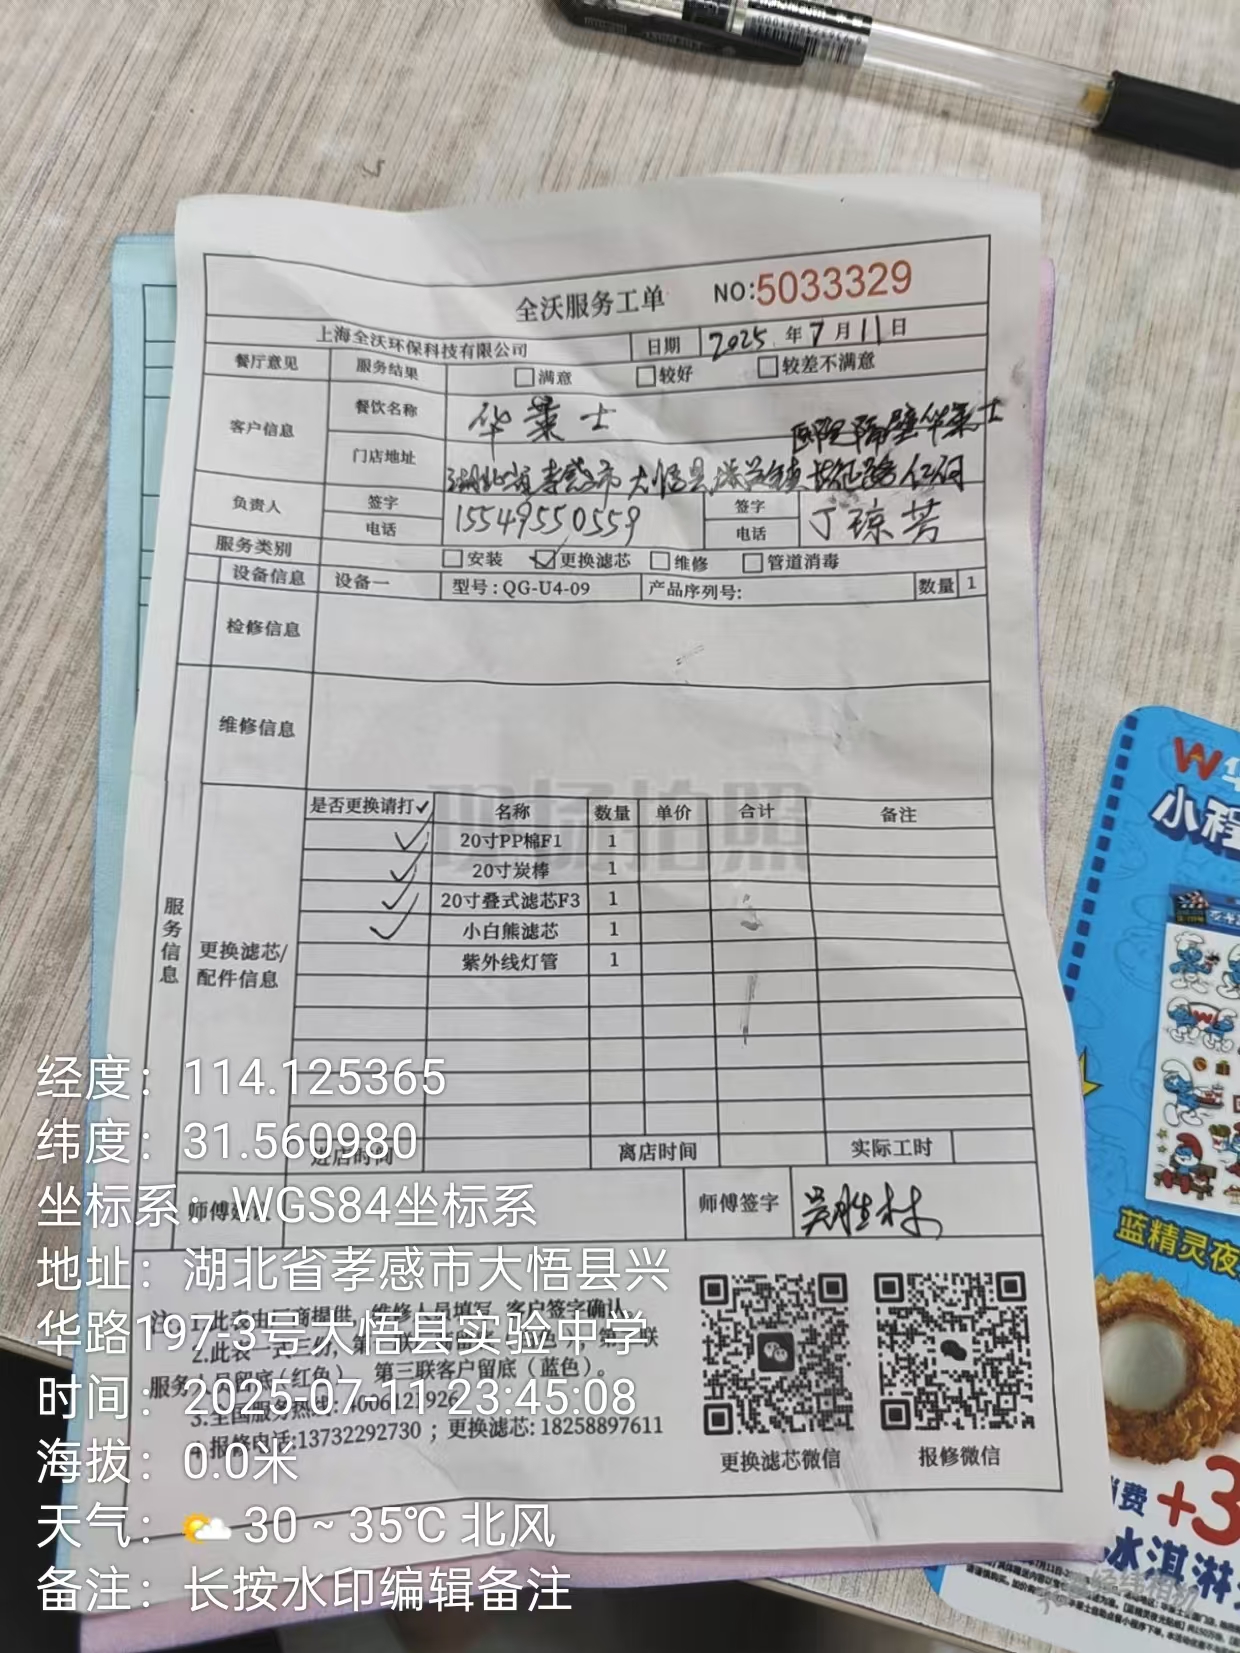 全沃服务工单 NO:5033329
上海全沃环保科技有限公司 日期 2025年7月11日
餐厅意见 服务结果 满意 较好 较差不满意
客户信息 餐饮名称 华莱士
隔壁华莱士
门店地址 湖北省孝感市大悟县 镇长征路
负责人 签字 电话 15549550559 签字 电话 丁琼芳
服务类别 安装 更换滤芯 维修 管道消毒
设备信息 设备一 型号:QG-U4-09 产品序列号: 数量 1
检修信息
维修信息
现场拍照
服务信息
更换滤芯/配件信息
是否更换请打✓ 名称 数量 单价 合计 备注
✓ 20寸PP棉F1 1
✓ 20寸炭棒 1
✓ 20寸叠式滤芯F3 1
✓ 小白熊滤芯 1
紫外线灯管 1
进店时间 离店时间 实际工时
师傅建议 师傅签字 吴胜林
注:1.此表由厂商提供,维修人员填写,客户签字确认。
2.此表一式三份,第
服务人员留底(红色) 第三联客户留底(蓝色)。
3.全国服务热线:4006121926
4.报修电话:13732292730;更换滤芯:18258897611
更换滤芯微信 报修微信
经度:114.125365
纬度:31.560980
坐标系:WGS84坐标系
地址:湖北省孝感市大悟县兴
华路197-3号大悟县实验中学
时间:2025-07-11 23:45:08
海拔:0.0米
天气: 30 ~ 35℃ 北风
备注:长按水印编辑备注
小程
蓝精灵夜
消费 +3
冰淇淋